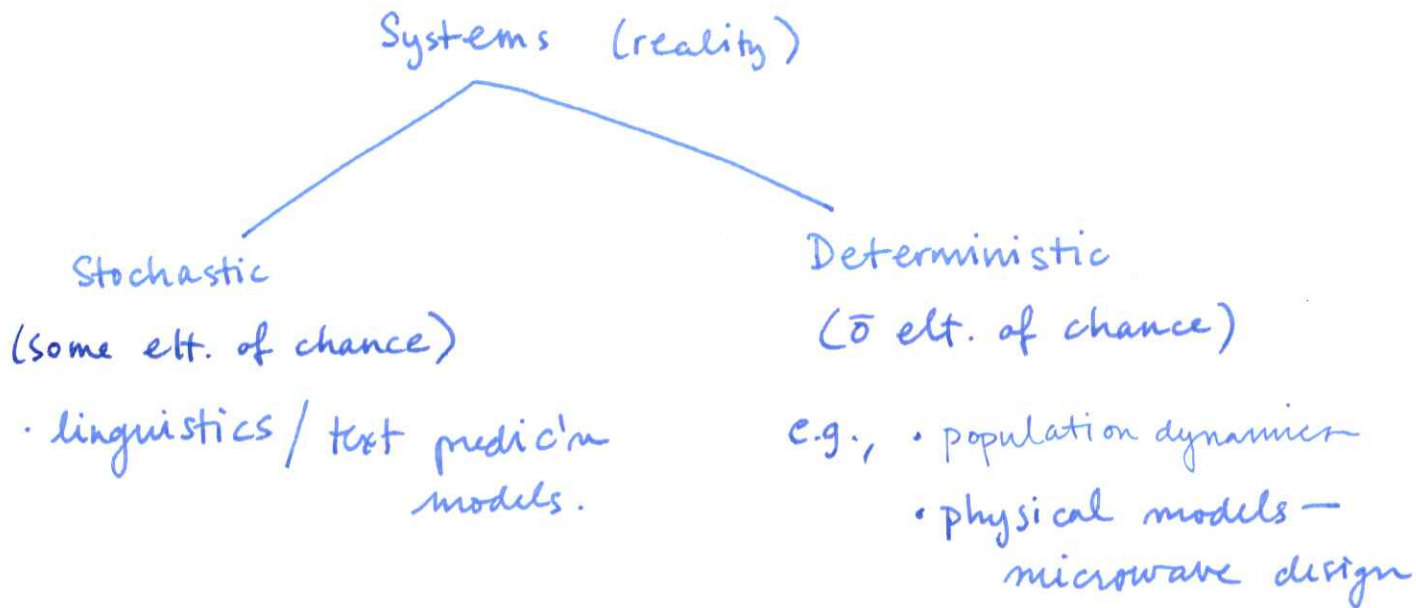 Systems (reality)
Stochastic
(some elt. of chance)
· linguistics / text predic'n
models.
Deterministic
(ō elt. of chance)
e.g., · population dynamics
· physical models —
microwave design